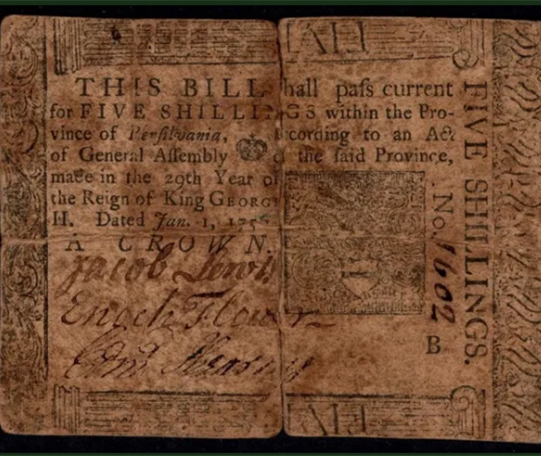 FIVE
THIS BILL shall paſs current
for FIVE SHILLINGS within the Pro-
vince of Penſilvania, according to an Act
of General Aſſembly of the ſaid Province,
made in the 29th Year of
the Reign of King GEORGE
II. Dated Jan. 1, 1756
A CROWN.
Jacob Lewis
Enoch Flower
FIVE
FIVE SHILLINGS.
No. 1602
B